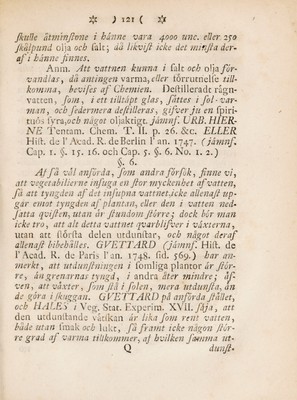 ✲ ) 121 ( ✲
skulle åtminstone i hänne vara 4000 unc. eller 250
skålpund olja och salt; då likvist icke det minsta der-
af i hänne finnes.
Anm. Att vattnen kunna i salt och olja för-
vandlas, då antingen varma, eller förrutnelse till-
komma, bevises af Chemien. Destilleradt rågn-
vatten, som, i ett tilltäpt glas, sättes i sol-var-
man, och sedermera destilleras, gifver ju en spiri-
tuös syra, och något oljaktigt. jämnf. URB. HIER-
NE Tentam. Chem. T. II. p. 26. &c. ELLER
Hist. de l'Acad. R. de Berlin l'an. 1747. (jämnf.
Cap. 1. §. 15. 16. och Cap. 5. §. 6. No. 1. 2.)
§. 6.
Af så väl anförda, som andra försök, finne vi,
att vegetabilierne insuga en stor myckenhet af vatten,
så att tyngden af det insupna vattnet, icke allenast up-
går emot tyngden af plantan, eller den i vatten ned-
satta qvisten, utan är stundom större; dock bör man
icke tro, att alt detta vattnet qvarblifver i växterna,
utan att största delen utdunstas, och något deraf
allenast bibehålles. GVETTARD (jämnf. Hist. de
l'Acad. R. de Paris l'an. 1748. sid. 569.) har an-
merkt, att utdunstningen i somliga plantor är stör-
re, än grenarnas tyngd, i andra åter mindre; äf-
ven, att växter, som stå i solen, mera utdunsta, än
de göra i skuggan. GVETTARD på anförda stället,
och HALES i Veg. Stat. Experim. XVII. säja, att
den utdunstande vätskan är lika som rent vatten,
både utan smak och lukt, så framt icke någon stör-
re grad af varma tillkommer, af hvilken samma ut-
Q dunst-